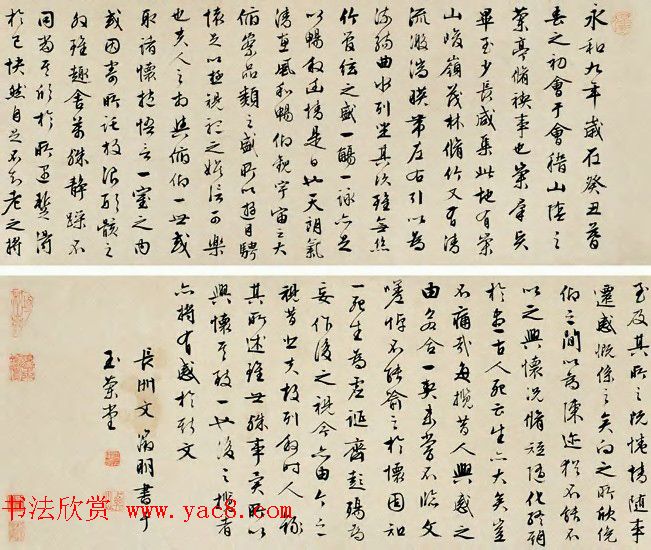 永和九年歲在癸丑暮
春之初會于會稽山陰之
蘭亭脩禊事也羣賢
畢至少長咸集此地有崇
山峻嶺茂林脩竹又有清
流激湍暎帶左右引以為
流觴曲水列坐其次雖無絲
竹管弦之盛一觴一詠亦足
以暢敘幽情是日也天朗氣
清惠風和暢仰觀宇宙之大
俯察品類之盛所以遊目騁
懷足以極視聽之娛信可樂
也夫人之相與俯仰一世或
取諸懷抱悟言一室之內
或因寄所託放浪形骸之
外雖趣舍萬殊靜躁不
同當其欣於所遇蹔得
於己怏然自足不知老之將
至及其所之既惓情隨事
遷感慨係之矣向之所欣俛
仰之間以為陳迹猶不能不
以之興懷況脩短隨化終期
於盡古人云死生亦大矣豈
不痛哉每攬昔人興感之
由若合一契未嘗不臨文
嗟悼不能喻之於懷固知
一死生為虛誕齊彭殤為
妄作後之視今亦由今之
視昔悲夫故列敘時人錄
其所述雖世殊事異所以
興懷其致一也後之攬者
亦將有感於斯文
長洲文徵明書于
玉蘭堂
书法欣赏 www.yac8.com